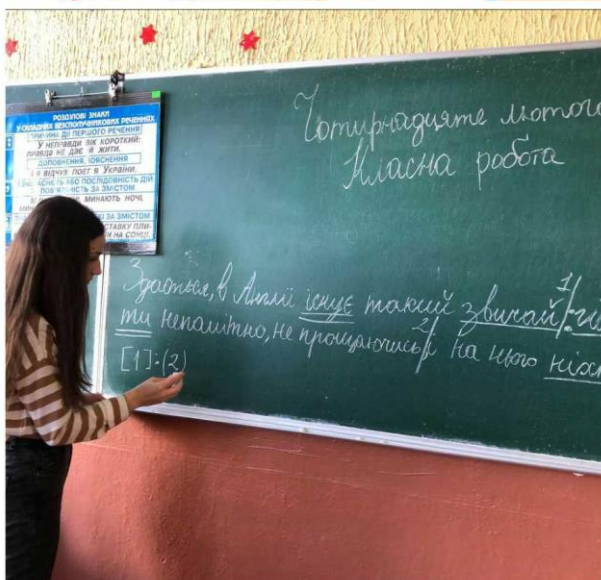 РОЗДІЛОВІ ЗНАКИ
У СКЛАДНИХ БЕЗСПОЛУЧНИКОВИХ РЕЧЕННЯХ
ПРИЧИНА ДО ПЕРШОГО РЕЧЕННЯ
У НЕПРАВДИ ВІК КОРОТКИЙ:
ПРАВДА НЕ ДАЄ ЖИТИ.
ДОПОВНЕННЯ, ПОЯСНЕННЯ
Я ВІДЧУВ: ПОЕТ Я УКРАЇНИ.
АБО ПОСЛІДОВНІСТЬ ДІЙ
ЗА ЗМІСТОМ
МИНАЮТЬ НОЧІ,
ЗА ЗМІСТОМ
СТАВКУ
НА СОНЦІ.
Чотирнадцяте лютого
Класна робота
Здається, в Англії існує такий звичай 1/:
ти непомітно, не прощаючись 2/, на нього
[1]:(2)